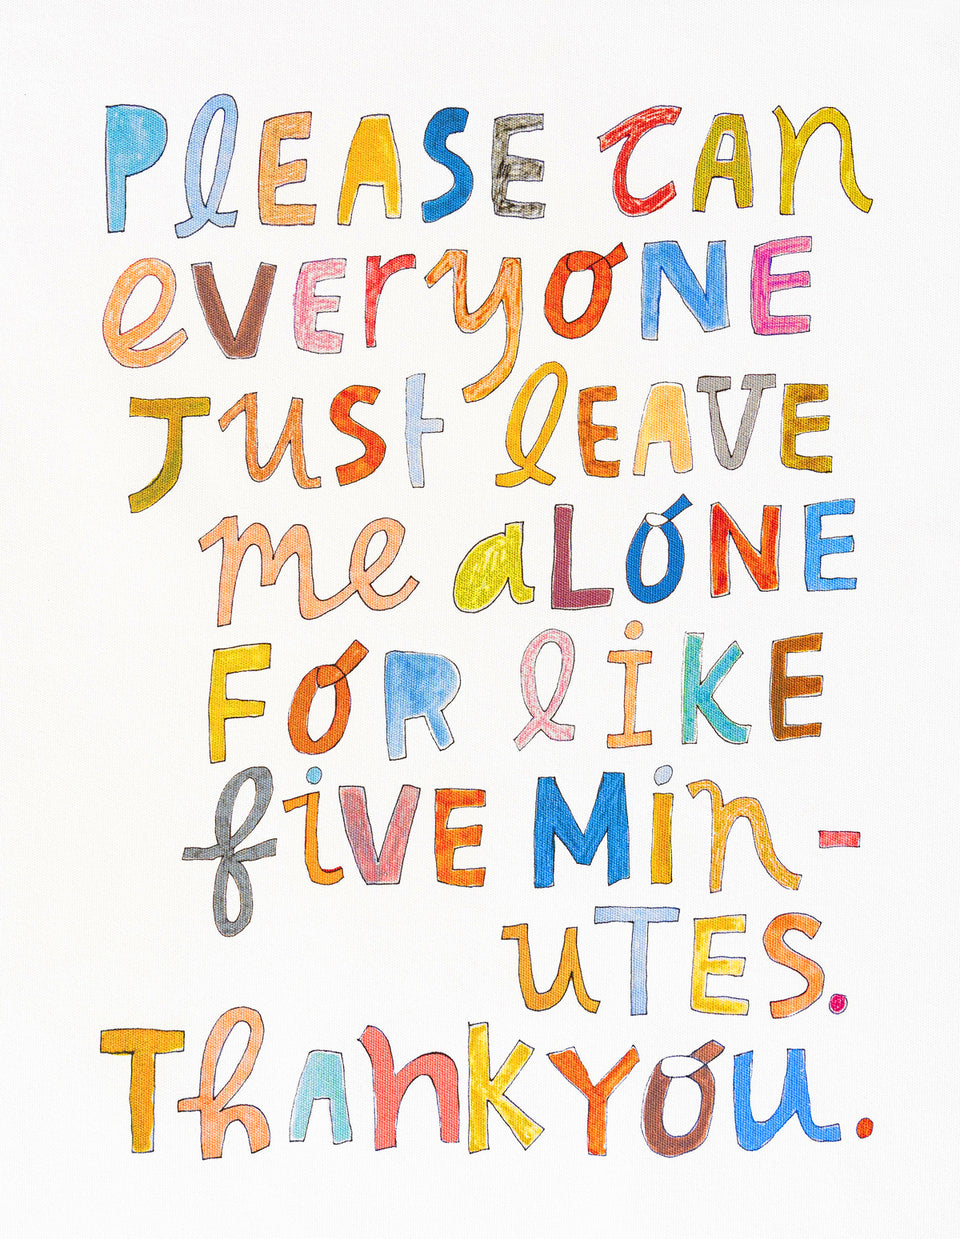 PlEASE CAn
eVEryONE
JusT lEAVE
me aLONE
FOR liKE
fiVE Min-
uTES.
ThAnKYOu.